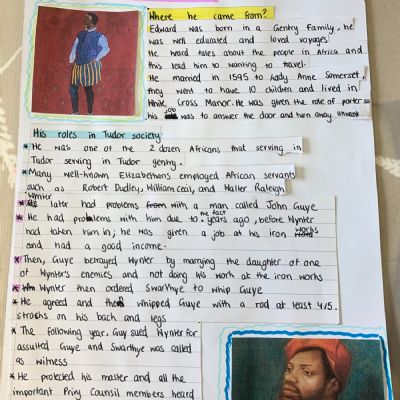 Where he came from?
Edward was born in a Gentry Family, he
was well educated and loved voyages
He heard tales about the people in Africa and
this lead him to wanting to travel.
He married in 1595 to Lady Anne Somerset,
they went to have 10 children and lived in
White Cross Manor. He was given the role of porter so
his job was to answer the door and turn away unwant
His roles in Tudor society
* He was one of the 2 dozen Africans that serving in
Tudor serving in Tudor gentry.
* Many well-known Elizabethans employed African servants
such as Robert Dudley, William cecil, and Walter Raleigh
* Wynter later had problems from with a man called John Guye
* He had problems with him due to the fact years ago, before Wynter
had taken him in; he was given a job at his iron works
and had a good income.
* Then, Guye betrayed Wynter by marrying the daughter of one
of Wynter's enemies and not doing his work at the iron works
* Wynter then ordered Swarthye to whip Guye
* He agreed and whipped Guye with a rod at least 4/5.
stroks on his back and legs
* The following year, Guy sued Wynter for
assulted Guye and Swarthye was called
as witness
* He protected his master and all the
important Priny Counsil members heard